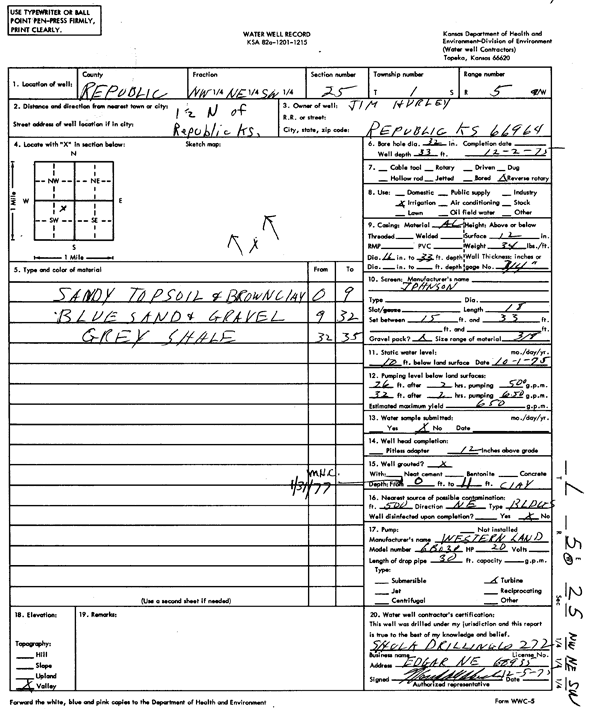 USE TYPEWRITER OR BALL
POINT PEN-PRESS FIRMLY,
PRINT CLEARLY.
WATER WELL RECORD
KSA 82a-1201-1215
Kansas Department of Health and
Environment-Division of Environment
(Water well Contractors)
Topeka, Kansas 66620
1. Location of well: County REPUBLIC Fraction NW 1/4 NE 1/4 SW 1/4 Section number 25 Township number T 1 S Range number R 5 E/W
2. Distance and direction from nearest town or city: 1 1/2 N of
Street address of well location if in city: Republic Ks.
3. Owner of well: JIM HURLEY
R.R. or street:
City, state, zip code: REPUBLIC KS 66964
4. Locate with "X" in section below: Sketch map:
N
NW NE
W E
X
SW SE
S
1 Mile
1 Mile
6. Bore hole dia. 32 in. Completion date
Well depth 33 ft. 12-2-75
7. Cable tool Rotary Driven Dug
Hollow rod Jetted Bored X Reverse rotary
8. Use: Domestic Public supply Industry
X Irrigation Air conditioning Stock
Lawn Oil field water Other
9. Casing: Material AL Height: Above or below
Threaded Welded Surface 12 in.
RMP PVC Weight 34 lbs./ft.
Dia. 16 in. to 33 ft. depth Wall Thickness: inches or
Dia. in. to ft. depth gage No.
5. Type and color of material From To
SANDY TOPSOIL & BROWN CLAY 0 9
BLUE SAND & GRAVEL 9 32
GREY SHALE 32 35
M.H.C.
1/31/77
10. Screen: Manufacturer's name
JOHNSON
Type Dia.
Slot/gauze Length 18
Set between 15 ft. and 33 ft.
ft. and ft.
Gravel pack? X Size range of material 3/8
11. Static water level: mo./day/yr.
10 ft. below land surface Date 10-1-75
12. Pumping level below land surfaces:
26 ft. after 2 hrs. pumping 500 g.p.m.
32 ft. after 2 hrs. pumping 650 g.p.m.
Estimated maximum yield 650 g.p.m.
13. Water sample submitted: mo./day/yr.
Yes X No Date
14. Well head completion:
Pitless adapter 12 Inches above grade
15. Well grouted? X
With: Neat cement Bentonite Concrete
Depth: From 0 ft. to 11 ft. CLAY
16. Nearest source of possible contamination:
ft. 500 Direction NE Type BLDGS
Well disinfected upon completion? Yes X No
17. Pump: Not installed
Manufacturer's name WESTERN LAND
Model number HP 20 Volts
Length of drop pipe 30 ft. capacity g.p.m.
Type:
Submersible X Turbine
Jet Reciprocating
Centrifugal Other
(Use a second sheet if needed)
18. Elevation:
Topography:
Hill
Slope
Upland
X Valley
19. Remarks:
20. Water well contractor's certification:
This well was drilled under my jurisdiction and this report
is true to the best of my knowledge and belief.
272
Business name License No.
Address EDGAR NE 68935
Signed Date 12-5-75
Authorized representative
Forward the white, blue and pink copies to the Department of Health and Environment
Form WWC-5
T 1 R 5 E Sec 25 NW 1/4 NE 1/4 SW 1/4